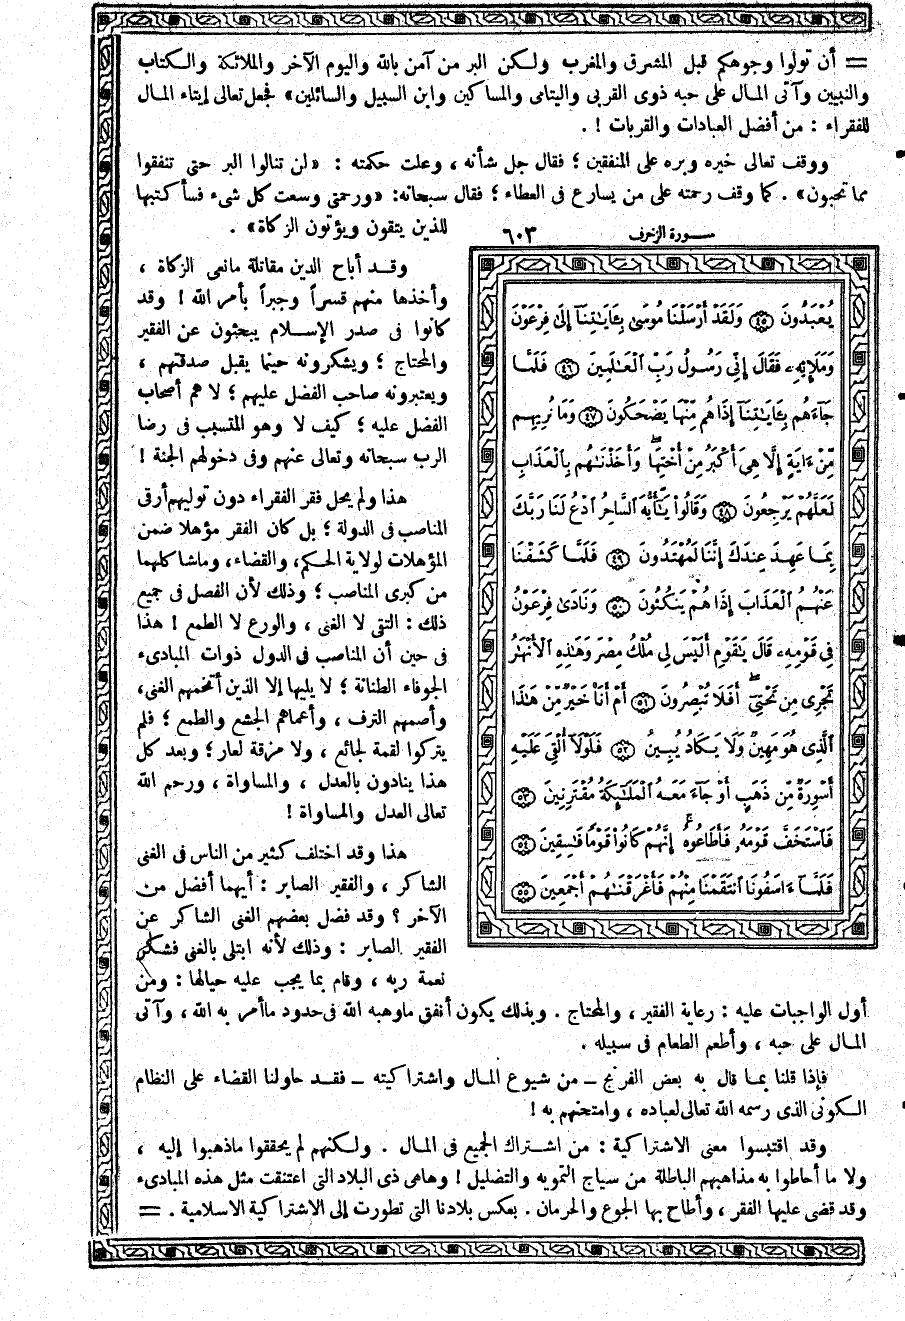 = أن تولوا وجوهكم قبل المشرق والمغرب ولكن البر من آمن بالله واليوم الآخر والملائكة والكتاب
والنبيين وآتى المال على حبه ذوى القربى واليتامى والمساكين وابن السبيل والسائلين» فجعل تعالى إيتاء المال
للفقراء : من أفضل العبادات والقربات ! .
ووقف تعالى خيره وبره على المنفقين ؛ فقال جل شأنه ، وعلت حكمته : «لن تنالوا البر حتى تنفقوا
مما تحبون» . كما وقف رحمته على من يسارع فى العطاء ؛ فقال سبحانه: «ورحمتى وسعت كل شىء فسأكتبها
للذين يتقون ويؤتون الزكاة» .
وقد أباح الدين مقاتلة مانعى الزكاة ،
وأخذها منهم قسراً وجبراً بأمر الله ! وقد
كانوا فى صدر الإسلام يبحثون عن الفقير
والمحتاج ؛ ويشكرونه حينما يقبل صدقتهم ،
ويعتبرونه صاحب الفضل عليهم ؛ لا هم أصحاب
الفضل عليه ؛ كيف لا وهو المتسبب فى رضا
الرب سبحانه وتعالى عنهم وفى دخولهم الجنة !
هذا ولم يحل فقر الفقراء دون توليهم أرقى
المناصب فى الدولة ؛ بل كان الفقر مؤهلا ضمن
المؤهلات لولاية الحكم، والقضاء، وماشاكلهما
من كبرى المناصب ؛ وذلك لأن الفصل فى جميع
ذلك : التقى لا الغنى ، والورع لا الطمع ! هذا
فى حين أن المناصب فى الدول ذوات المبادىء
الجوفاء الطنانة ؛ لا يليها إلا الذين أتخمهم الغنى،
وأصمهم الترف ، وأعماهم الجشع والطمع ؛ فلم
يتركوا لقمة لجائع ، ولا مزقة لعار ؛ وبعد كل
هذا ينادون بالعدل ، والمساواة ، ورحم الله
تعالى العدل والمساواة !
هذا وقد اختلف كثير من الناس فى الغنى
الشاكر ، والفقير الصابر : أيهما أفضل من
الآخر ؟ وقد فضل بعضهم الغنى الشاكر عن
الفقير الصابر : وذلك لأنه ابتلى بالغنى فشكر
نعمة ربه ، وقام بما يجب عليه حيالها : ومن
سورة الزخرف ٦٠٣
يُعْبَدُونَ ﴿٤٥﴾ وَلَقَدْ أَرْسَلْنَا مُوسَىٰ بِـَٔايَـٰتِنَآ إِلَىٰ فِرْعَوْنَ
وَمَلَإِيْهِۦ فَقَالَ إِنِّى رَسُولُ رَبِّ ٱلْعَـٰلَمِينَ ﴿٤٦﴾ فَلَمَّا
جَآءَهُم بِـَٔايَـٰتِنَآ إِذَا هُم مِّنْهَا يَضْحَكُونَ ﴿٤٧﴾ وَمَا نُرِيهِم
مِّنْ ءَايَةٍ إِلَّا هِىَ أَكْبَرُ مِنْ أُخْتِهَا ۖ وَأَخَذْنَـٰهُم بِٱلْعَذَابِ
لَعَلَّهُمْ يَرْجِعُونَ ﴿٤٨﴾ وَقَالُوا۟ يَـٰٓأَيُّهَ ٱلسَّاحِرُ ٱدْعُ لَنَا رَبَّكَ
بِمَا عَهِدَ عِندَكَ إِنَّنَا لَمُهْتَدُونَ ﴿٤٩﴾ فَلَمَّا كَشَفْنَا
عَنْهُمُ ٱلْعَذَابَ إِذَا هُمْ يَنكُثُونَ ﴿٥٠﴾ وَنَادَىٰ فِرْعَوْنُ
فِى قَوْمِهِۦ قَالَ يَـٰقَوْمِ أَلَيْسَ لِى مُلْكُ مِصْرَ وَهَـٰذِهِ ٱلْأَنْهَـٰرُ
تَجْرِى مِن تَحْتِىٓ ۖ أَفَلَا تُبْصِرُونَ ﴿٥١﴾ أَمْ أَنَا۠ خَيْرٌ مِّنْ هَـٰذَا
ٱلَّذِى هُوَ مَهِينٌ وَلَا يَكَادُ يُبِينُ ﴿٥٢﴾ فَلَوْلَآ أُلْقِىَ عَلَيْهِ
أَسْوِرَةٌ مِّن ذَهَبٍ أَوْ جَآءَ مَعَهُ ٱلْمَلَـٰٓئِكَةُ مُقْتَرِنِينَ ﴿٥٣﴾
فَٱسْتَخَفَّ قَوْمَهُۥ فَأَطَاعُوهُ ۚ إِنَّهُمْ كَانُوا۟ قَوْمًا فَـٰسِقِينَ ﴿٥٤﴾
فَلَمَّآ ءَاسَفُونَا ٱنتَقَمْنَا مِنْهُمْ فَأَغْرَقْنَـٰهُمْ أَجْمَعِينَ ﴿٥٥﴾
أول الواجبات عليه : رعاية الفقير ، والمحتاج . وبذلك يكون أنفق ماوهبه الله فى حدود ماأمر به الله ، وآتى
المال على حبه ، وأطعم الطعام فى سبيله .
فإذا قلنا بما قال به بعض الفرنج – من شيوع المال واشتراكيته – فقد حاولنا القضاء على النظام
الكونى الذى رسمه الله تعالى لعباده ، وامتحنهم به !
وقد اقتبسوا معنى الاشتراكية : من اشتراك الجميع فى المال . ولكنهم لم يحققوا ماذهبوا إليه ،
ولا ما أحاطوا به مذاهبهم الباطلة من سياج التمويه والتضليل ! وهاهى ذى البلاد التى اعتنقت مثل هذه المبادىء
وقد قضى عليها الفقر ، وأطاح بها الجوع والحرمان . بعكس بلادنا التى تطورت إلى الاشتراكية الاسلامية . =